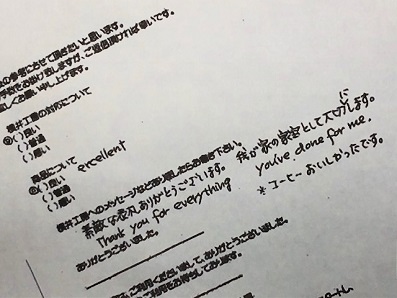 の参考にさせて頂きたいと思います。
お手数をお掛け致しますが、ご返信頂ければ幸いです。
宜しくお願い申し上げます。
桜井工業の対応について
()良い
()普通
()悪い
商品について
()良い excellent
()普通
()悪い
桜井工業へのメッセージなどありましたらお書き下さい。
素敵な表札ありがとうございます。我が家の家宝として大切にします。
Thank you for everything you've done for me.
*コーヒーおいしかったです。
ありがとうございました。
ご利用くださいまして、ありがとうございました。
ご利用をお待ちしております。